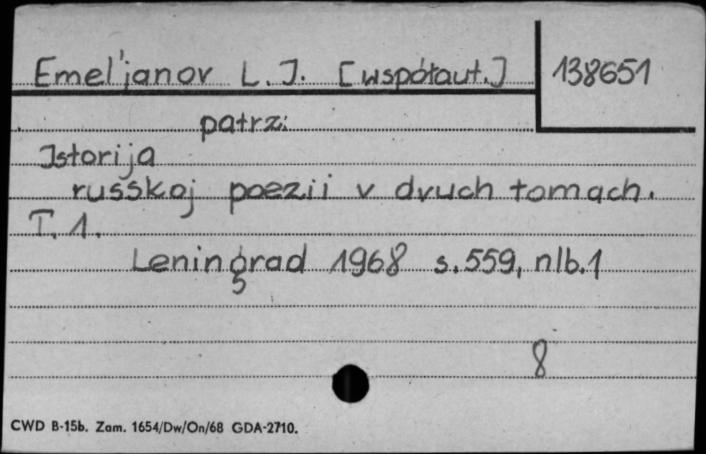 Emel'janov L. J. [współaut.] 138651
patrz:
Istorija
russkoj poezii v dvuch tomach.
T. 1.
Leningrad 1968 s. 559, nlb. 1
8
CWD B-15b. Zam. 1654/Dw/On/68 GDA-2710.